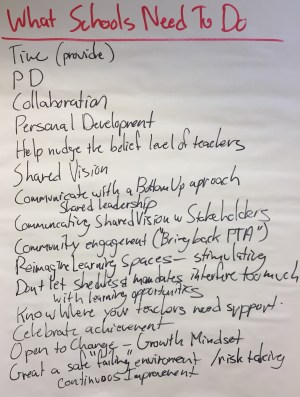 What Schools Need To Do
Time (provide)
PD
Collaboration
Personal Development
Help nudge the belief level of teachers
Shared Vision
Communicate with a Bottom Up aproach
Shared leadership
Communcating Shared Vision w Stakeholders
Community engagement ("Bring back PTA")
Reimagine Learning Spaces – stimulating
Dont let and mandates interfere too much
with learning opportunities
Know where your teachers need support.
Celebrate achievement
Open to Change – Growth Mindset
Great a safe "failing" enviroment /risk taking
continuous Improvement